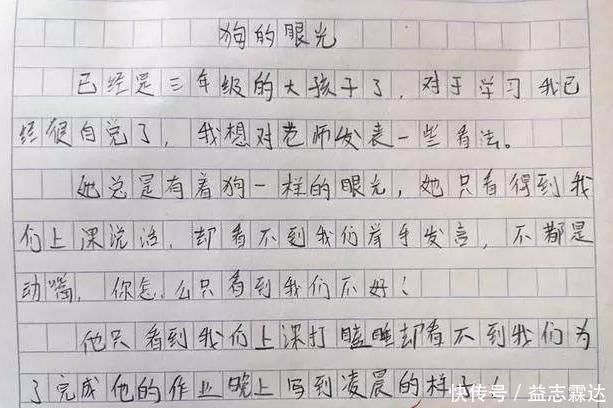 狗的眼光
已经是三年级的大孩子了，对于学习我已
经很自觉了，我想对老师发表一些看法。
她总是有着狗一样的眼光，她只看得到我
们上课说话，却看不到我们举手发言，不都是
动嘴，你怎么只看到我们不好！
他只看到我们上课打瞌睡却看不到我们为
了完成他的作业晚上写到凌晨的样子！
快传号 / 益志霖达